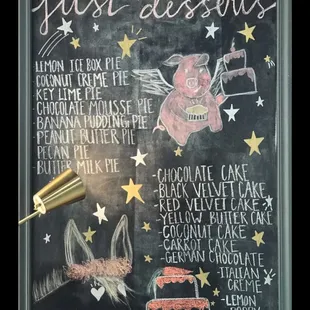 just desserts
LEMON ICE BOX PIE
COCONUT CREME PIE
KEY LIME PIE
CHOCOLATE MOUSSE PIE
BANANA PUDDING PIE
PEANUT BUTTER PIE
PECAN PIE
BUTTER MILK PIE
-CHOCOLATE CAKE
-BLACK VELVET CAKE
-RED VELVET CAKE
-YELLOW BUTTER CAKE
-COCONUT CAKE
-CARROT CAKE
-GERMAN CHOCOLATE
-ITALIAN
CREME
-LEMON
POPPY